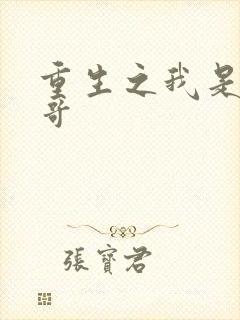 重生之我是
哥
張寶君